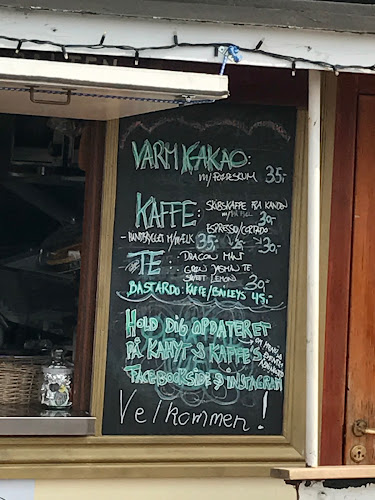 VARM KAKAO:
m/FLØDESKUM 35,-
KAFFE: SKIBSKAFFE FRA KANDEN
30,-
ESPRESSO/CORTADO
HÅNDBRYGGET M/MÆLK 35,- 30,-
TE: DRAGON MINT
GRØN JASMIN TE
SWEET LEMON 30,-
BASTARDO: KAFFE/BAILEYS 45,-
HOLD DIG OPDATERET
PÅ KAHYT & KAFFE'S
FACEBOOKSIDE & INSTAGRAM
OM MENU
Velkommen!